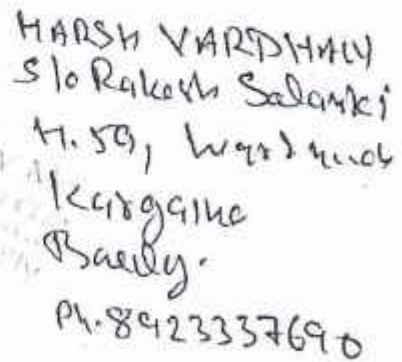 HARSH VARDHAN
S/o Rakesh Solanki
H.59,
Kargaina
Bareilly.
Ph. 8923337690